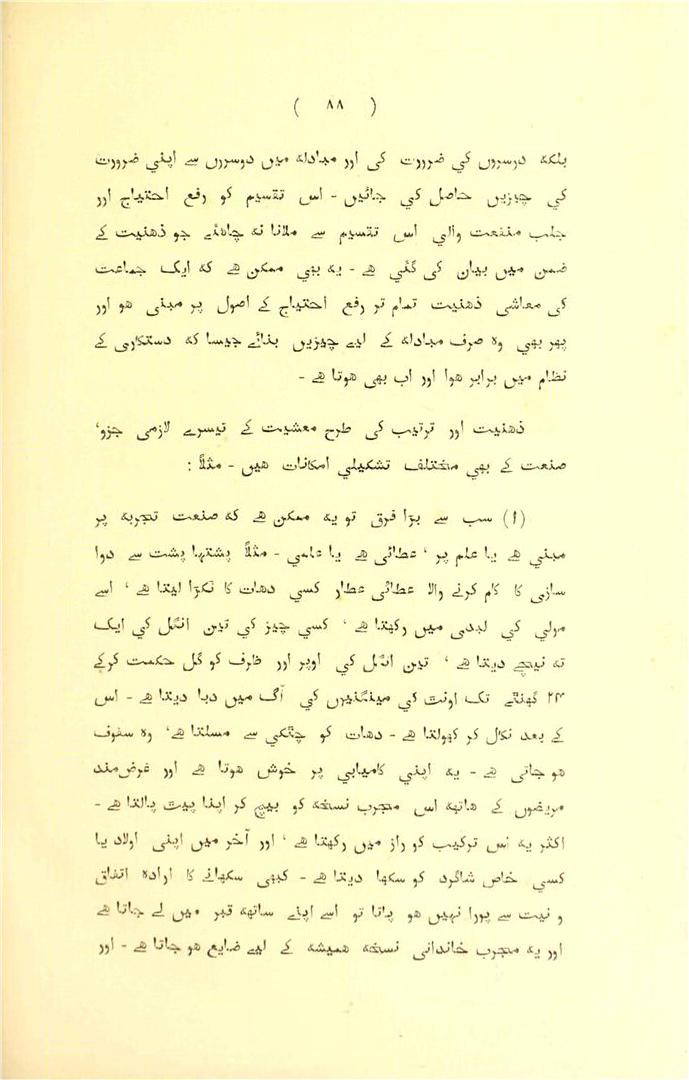 ( ٨٨ )
بلکہ درسروں کي ضررورت کی اور مبادلہ میں دوسررں سے اپني ضرورت
کي چیزیں حاصل کي جائیں - اس تقسیم کو رفع احتیاج اور
جلب منفعت والي اس تقسیم سے ملانا نہ چاھئے جو ذھنیت کے
ضمن میں بیان کی گئي ھے - یہ بھي ممکن ھے کہ ایک جماعت
کی معاشي ذھنیت تمام تر رفع احتیاج کے اصول پر مبنی ھو اور
پھر بھي وہ صرف مبادلہ کے لیے چیزیں بنائے جیسا کہ دستکاری کے
نظام میں برابر ھوا اور اب بھی ھوتا ھے -
ذھنیت اور ترتیب کی طرح معشیت کے تیسرے لازمی جزو،
صنعت کے بھي مختلف تشکیلي امکانات ھیں - مثلاً :
(ا) سب سے بڑا فرق تو یہ ممکن ھے کہ صنعت تجربہ پر
مبني ھے یا علم پر ، عطائی ھے یا علمي - مثلاً پشتہا پشت سے دوا
سازی کا کام کرنے والا عطائی عطار کسي دھات کا ٹکڑا لیتا ھے ، اسے
مولي کی لبدی میں رکھتا ھے ، کسي چیز کی تین انگل کی ایک
تہ نیچے دیتا ھے ، تین انگل کی اوپر اور ظرف کو گل حکمت کرکے
٢٤ گھنٹے تک اونٹ کي مینگنیرں کي آگ میں دبا دیتا ھے - اس
کے بعد نکال کر کھولتا ھے - دھات کو چٹکي سے مسلتا ھے، وہ سفوف
ھو جاتی ھے - یہ اپنی کامیابي پر خوش ھوتا ھے اور غرض مند
مریضوں کے ھاتھہ اس مجرب نسخہ کو بیچ کر اپنا پیٹ پالتا ھے -
اکثر یہ اس ترکیب کو راز میں رکھتا ھے ، اور آخر میں اپنی اولاد یا
کسي خاص شاگرد کو سکھا دیتا ھے - کبھی سکھانے کا ارادہ اتفاق
و نیت سے پورا نہیں ھو پاتا تو اسے اپنے ساتھہ قبر میں لے جاتا ھے
اور یہ مجرب خاندانی نسخہ ھمیشہ کے لیے ضایع ھو جاتا ھے - اور